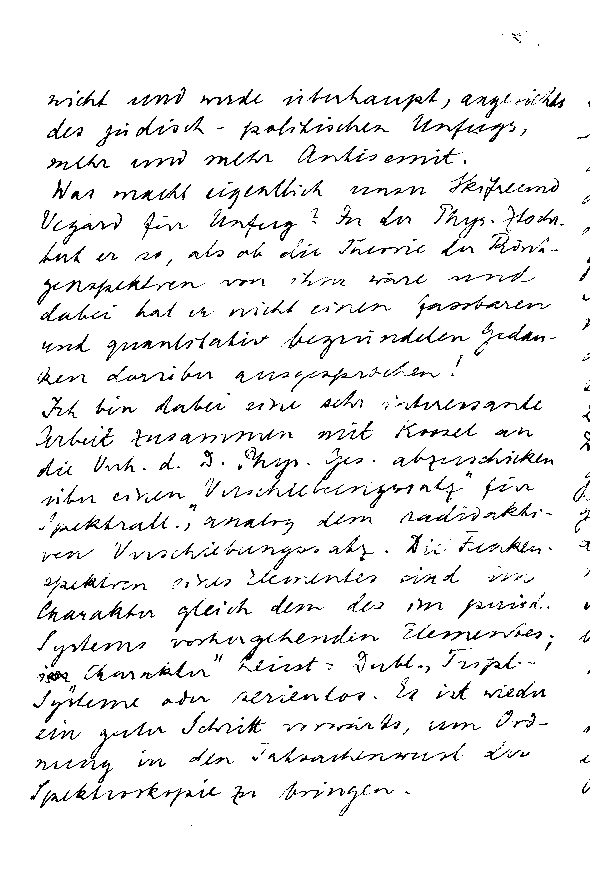 nicht und werde überhaupt, angesichts
des jüdisch-politischen Unfugs,
mehr und mehr Antisemit.
Was macht eigentlich unser Skifreund
Vegard für Unfug? In der Phys. Ztschr.
tut er so, als ob die Theorie der Rönt-
genspektren von ihm wäre und
dabei hat er nicht einen fassbaren
und quantitativ begründeten Gedan-
ken darüber ausgesprochen!
Ich bin dabei eine sehr interessante
Arbeit zusammen mit Kossel an
die Verh. d. D. Phys. Ges. abzuschicken
über einen "Verschiebungssatz" für
Spektrall., analog dem radioakti-
ven Verschiebungssatz. Die Funken-
spektren eines Elementes sind im
Charakter gleich dem des im period.
Systems vorhergehenden Elementes;
"Charakter" heisst = Dubl., Tripl.-
Systeme oder serienlos. Es ist wieder
ein guter Schritt vorwärts, um Ord-
nung in den Tatsachenwust der
Spektroskopie zu bringen.